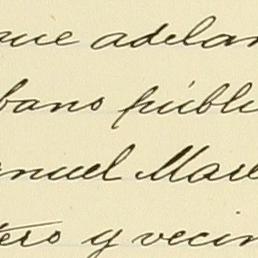 que adelan
bano públi
anuel Mare
tero y vecin